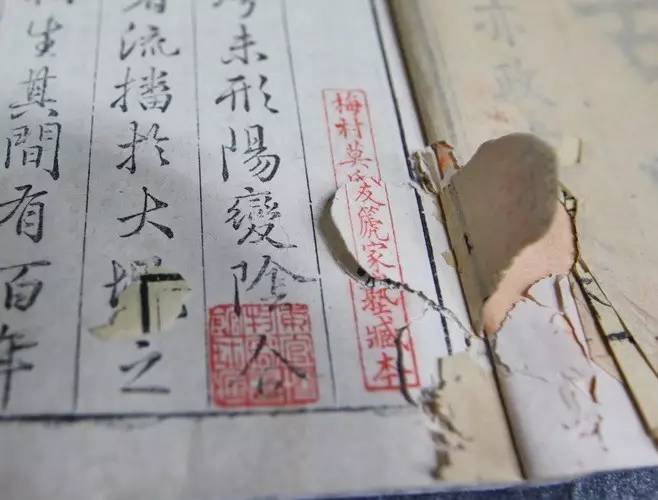 亦政
梅村莫氏家塾藏本
未形陽變陰
流播於大之
生其間有百年